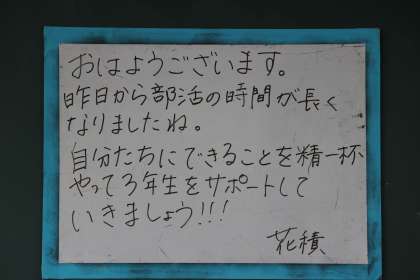 おはようございます。
昨日から部活の時間が長く
なりましたね。
自分たちにできることを精一杯
やって3年生をサポートして
いきましょう!!!
花積